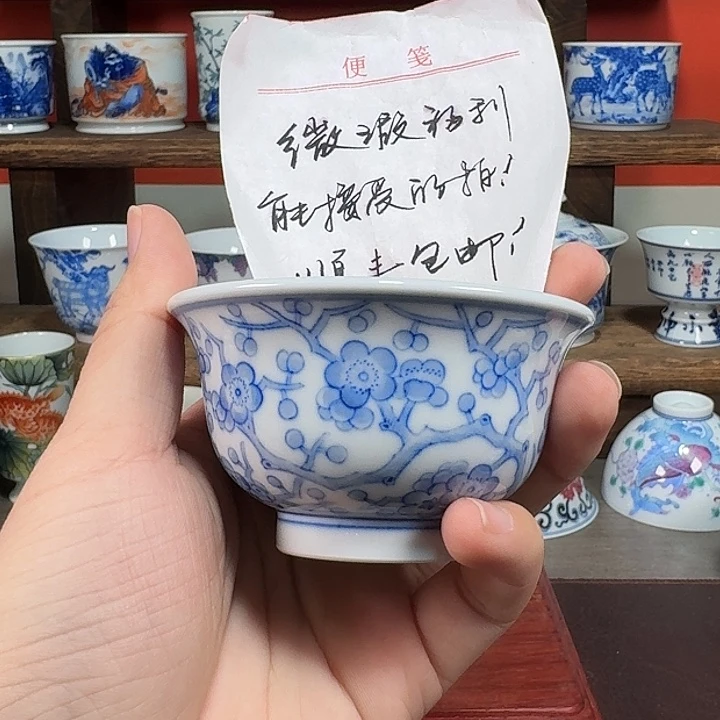 便 笺
微瑕福利
能接受的拍!
顺丰包邮!